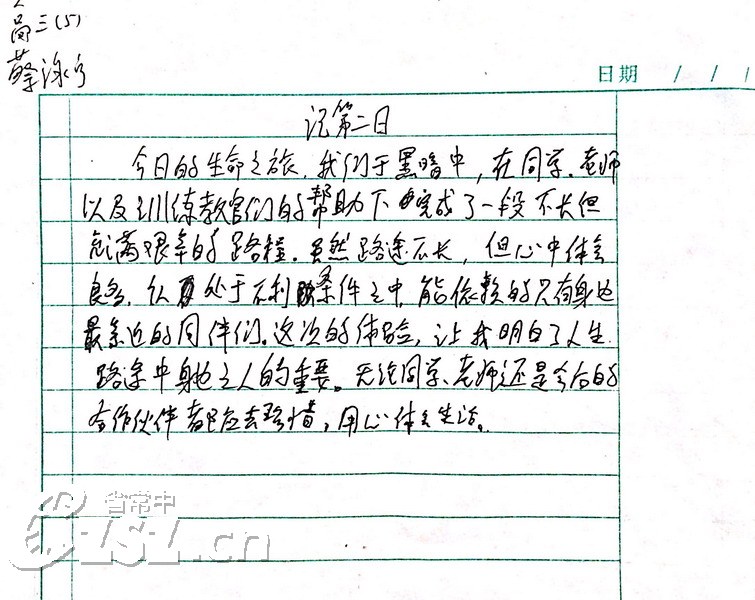 高三(5)
蔡泳
日期 / / /
记第二日
今日的生命之旅,我们于黑暗中,在同学、老师
以及训练教官们的帮助下 完成了一段不长但
充满艰辛的路程。虽然路途不长,但心中体会
良多,仅身处于不利条件之中,能依赖的只有身边
最亲近的同伴们。这次的体验,让我明白了人生
路途中身边之人的重要。无论同学、老师还是今后的
合作伙伴都应去珍惜,用心体会生活。
省常中
CZSZ.cn